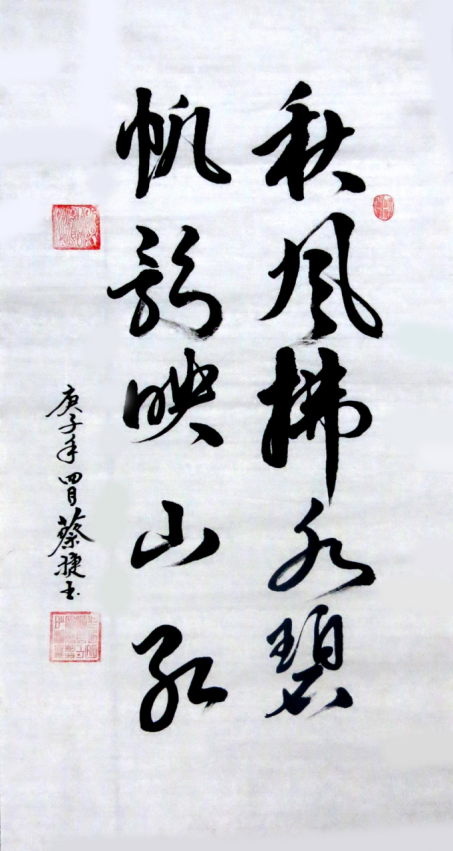 秋风拂水碧
帆影映山红
庚子年四月蔡捷玉